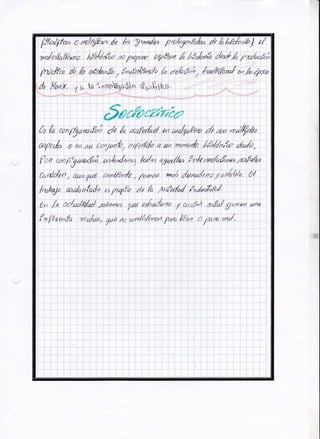 filosofías o religión de los grandes protagonistas de la historia), el
materialismo histórico se propone explicar la historia desde la producción
práctica de la existencia, invirtiendo la relación tradicional en la época
de Marx. y a la investigación científica.
Sociocrítico
Es la configuración de la sociedad en cualquiera de sus múltiples
aspectos o en su conjunto, referido a un momento histórico dado.
Por configuración entendemos todas aquellas interrelaciones sociales
que, aunque cambiante, parece más duradero y estable. El
trabajo asalariado es propio de la sociedad industrial.
En la actualidad sabemos que estructura y acción social ejercen una
influencia mutua, que se condicionan para bien o para mal.